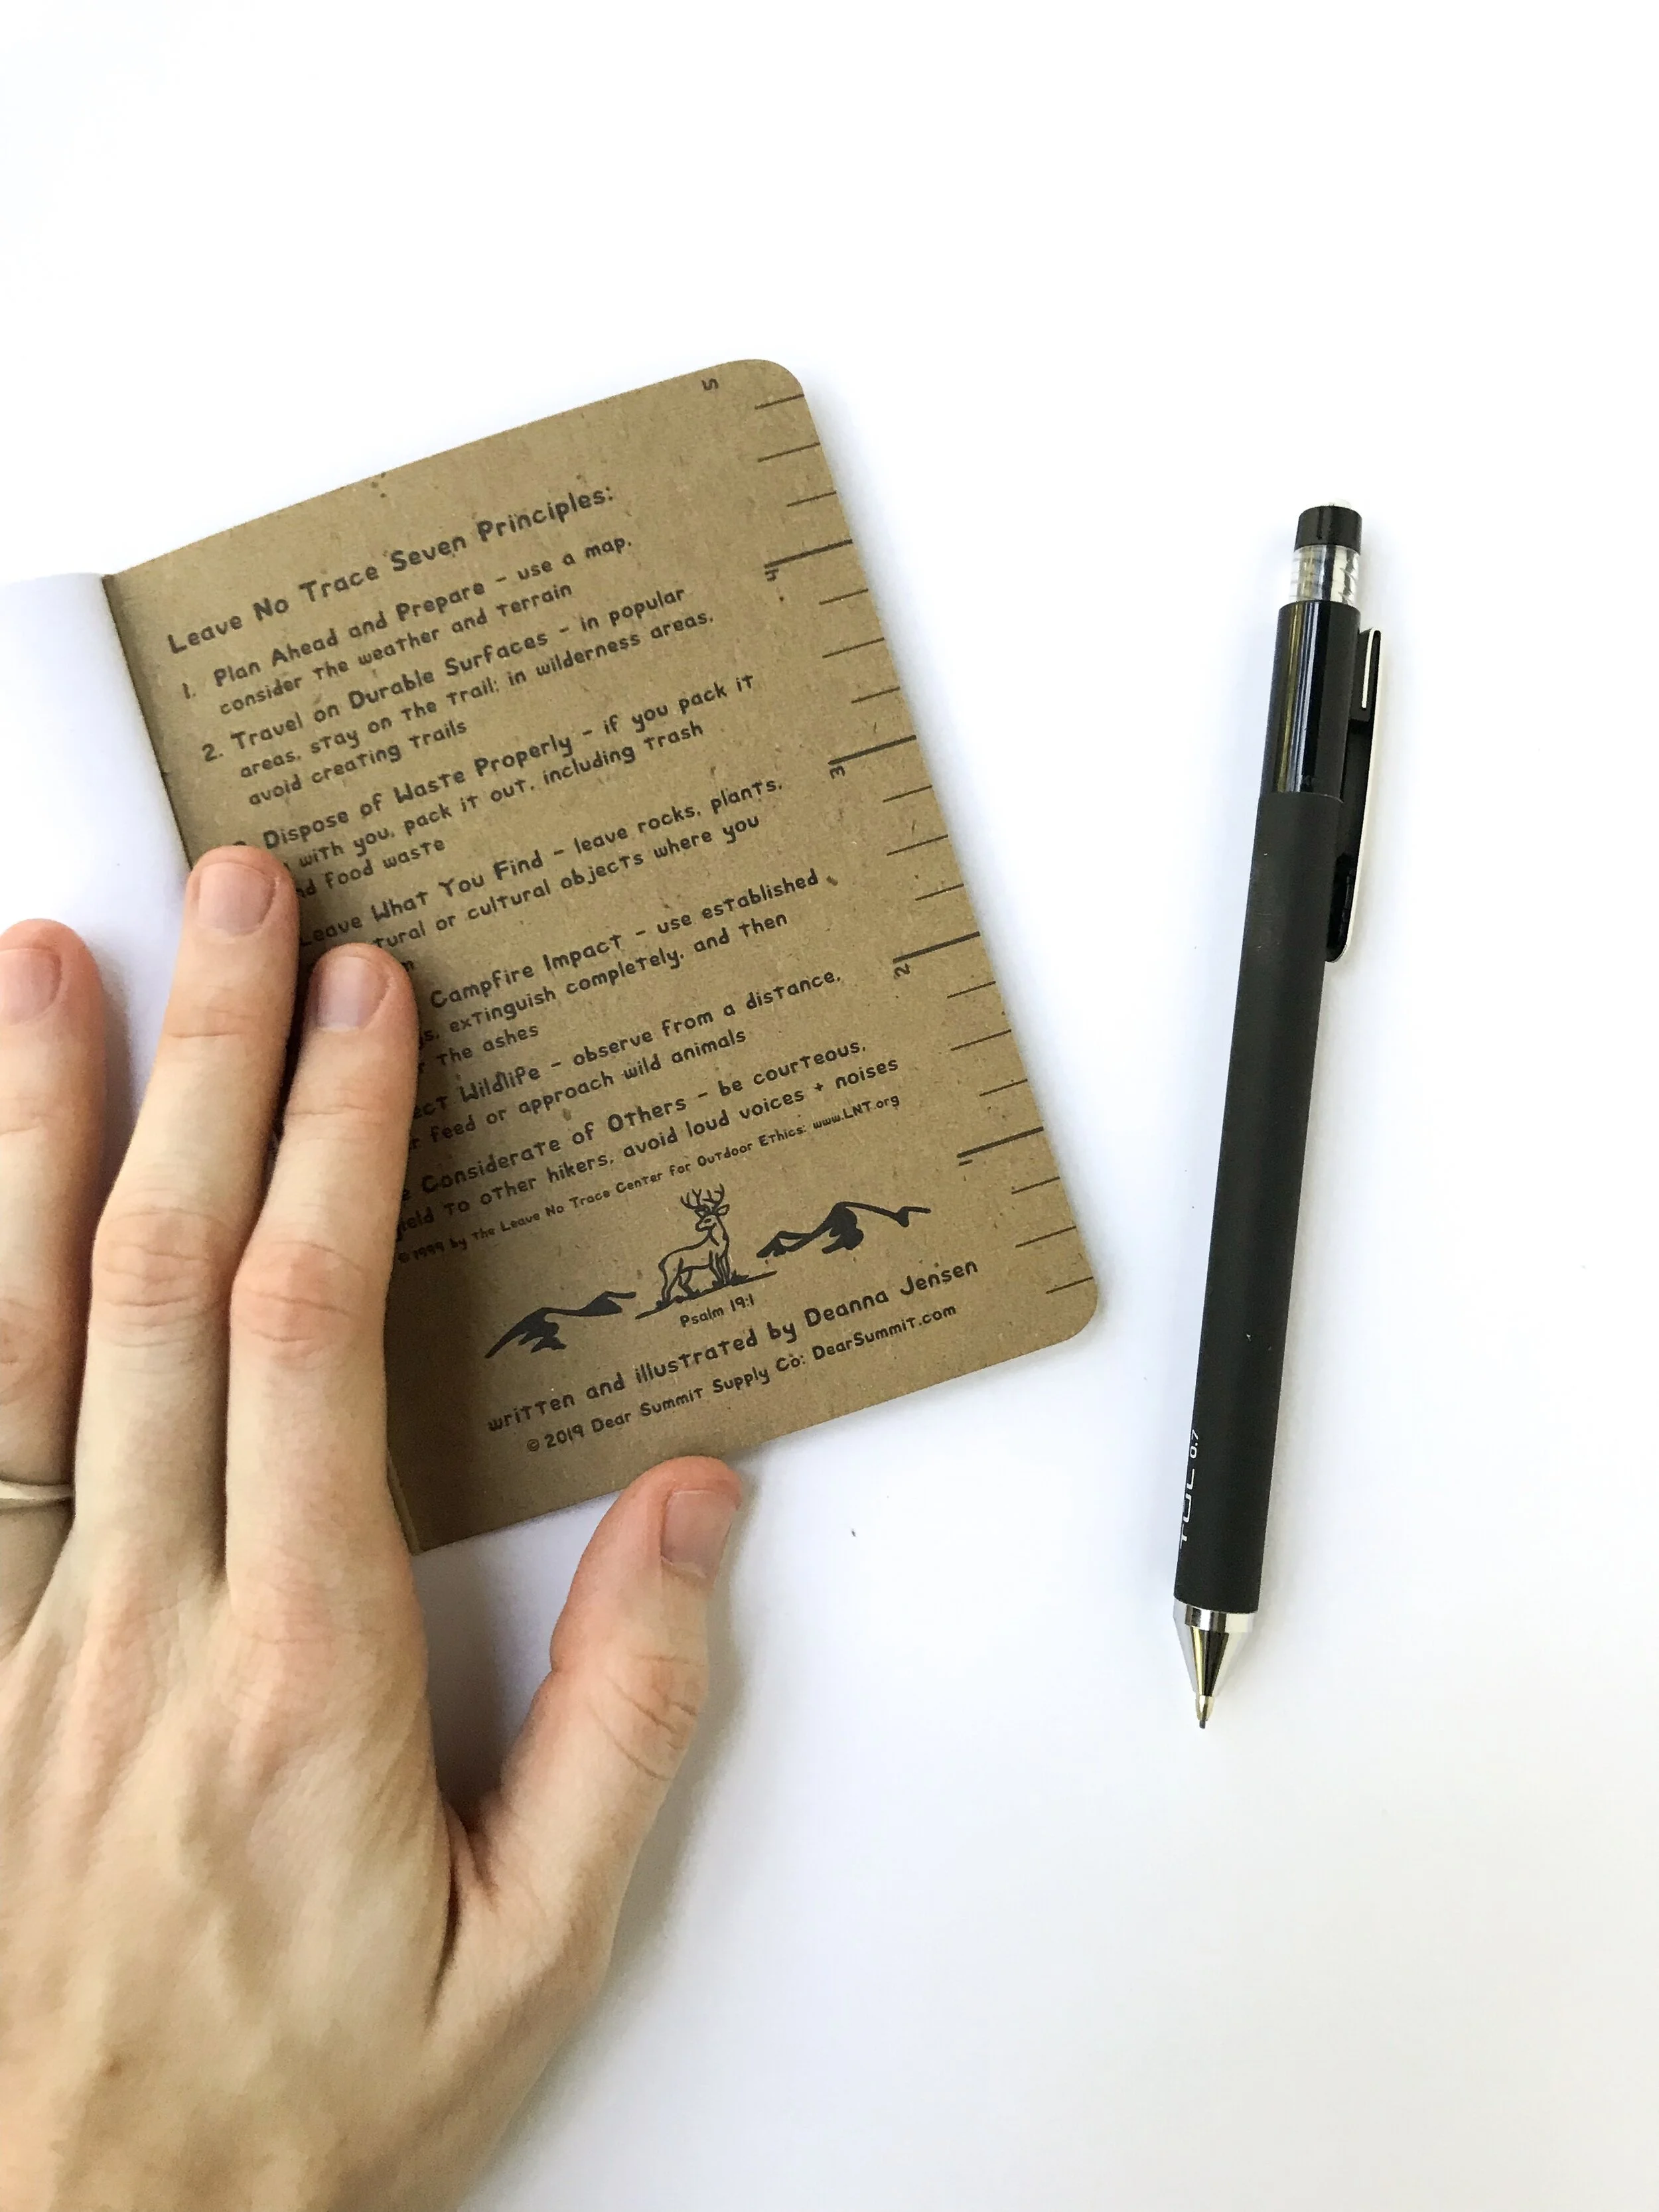 Leave No Trace Seven Principles:
1. Plan Ahead and Prepare - use a map,
consider the weather and terrain
2. Travel on Durable Surfaces - in popular
areas, stay on the trail; in wilderness areas,
avoid creating trails
Dispose of Waste Properly - if you pack it
with you, pack it out, including trash
nd food waste
Leave What You Find - leave rocks, plants,
tural or cultural objects where you
m
Campfire Impact - use established
gs, extinguish completely, and then
r the ashes
ect Wildlife - observe from a distance,
r feed or approach wild animals
e Considerate of Others - be courteous,
ield to other hikers, avoid loud voices + noises
© 1999 by the Leave No Trace Center for Outdoor Ethics: www.LNT.org
Psalm 19:1
written and illustrated by Deanna Jensen
© 2019 Dear Summit Supply Co: DearSummit.com
5
4
3
2
1
TUL 0.7